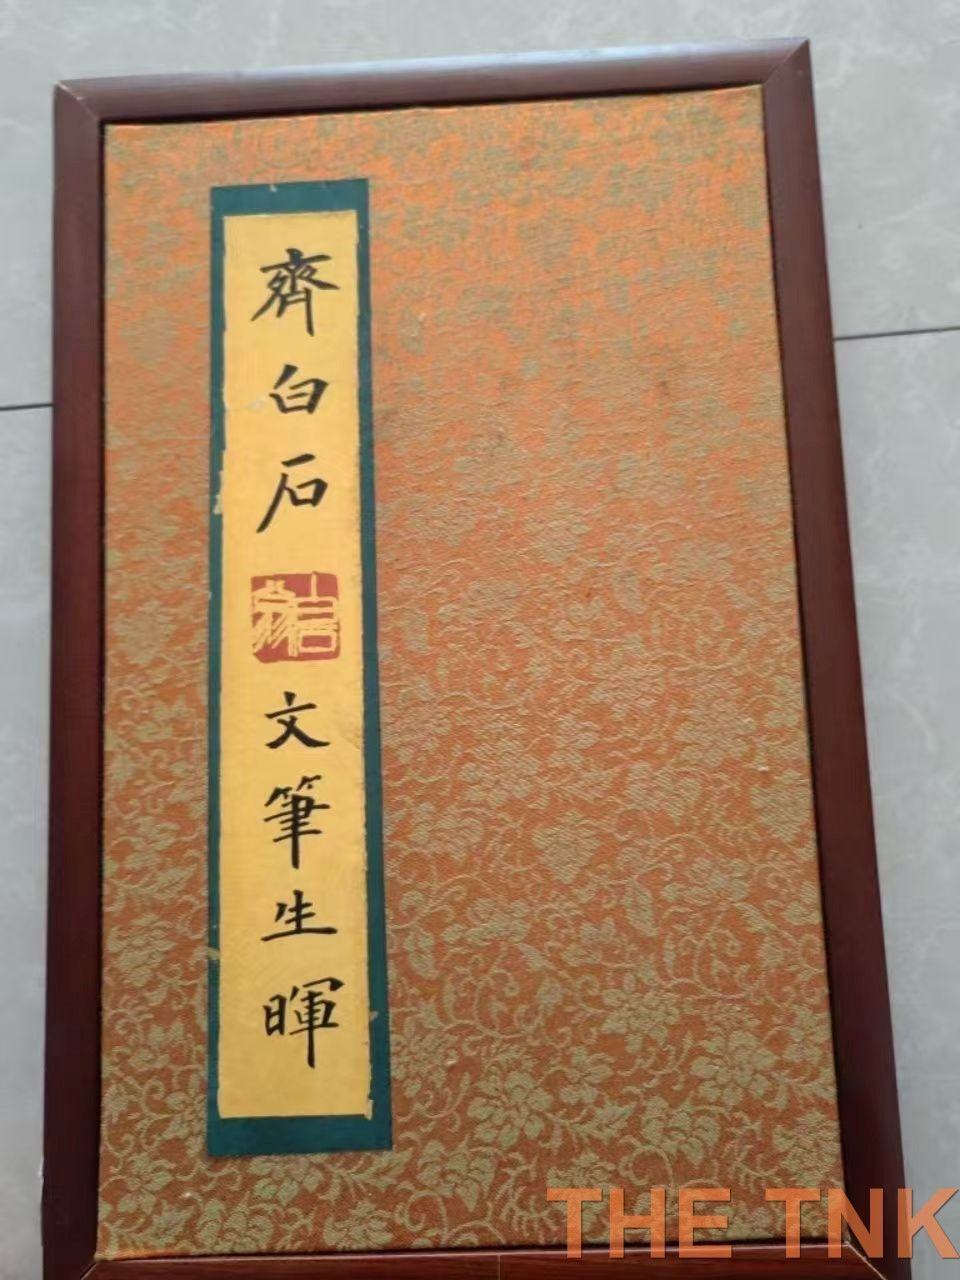 齊白石
文筆生暉
THE TNK